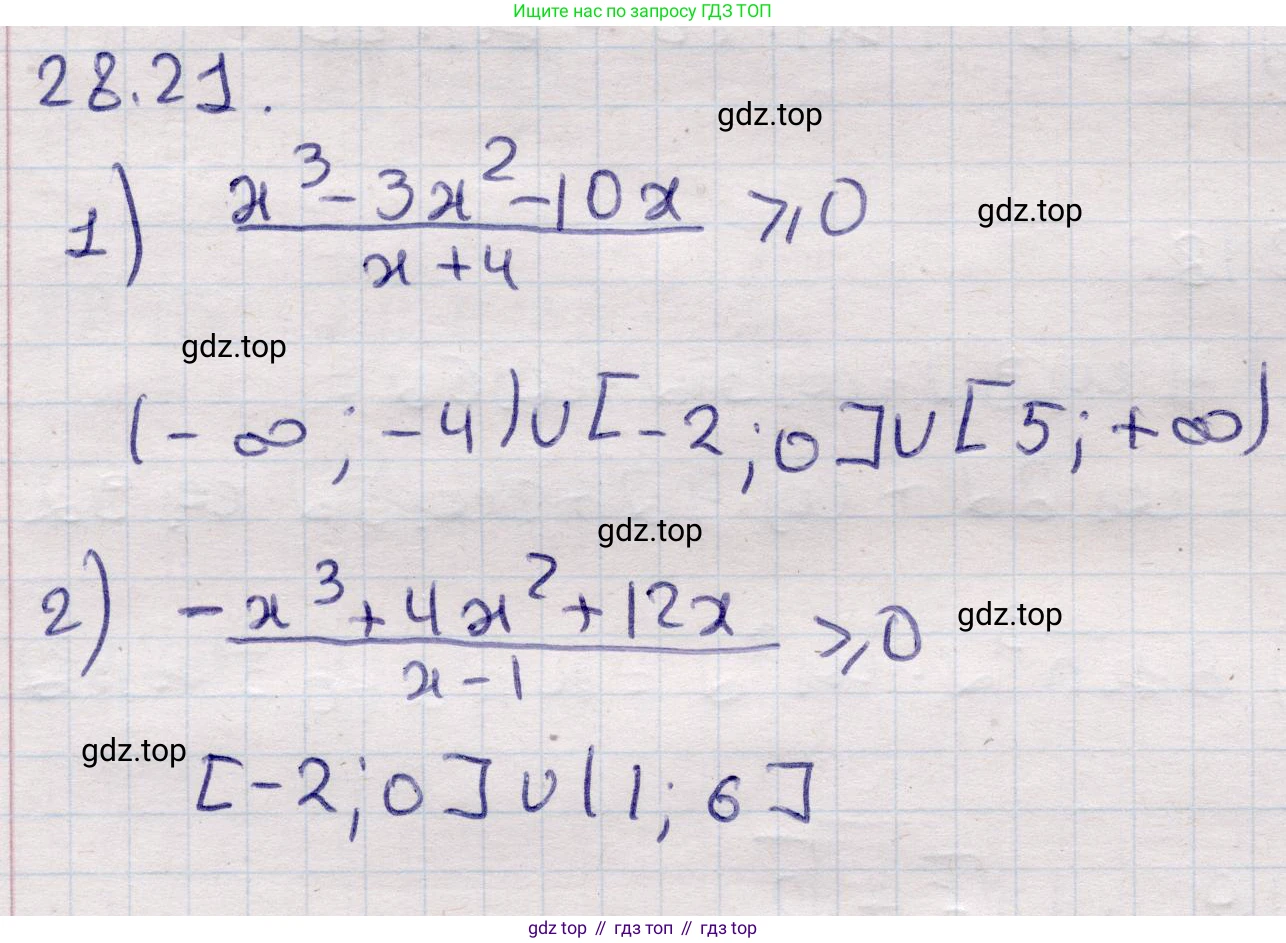 Ищите нас по запросу ГДЗ ТОП
28.21.
gdz.top
1) x³-3x²-10x / x+4 ⩾0
gdz.top
gdz.top
(-∞; -4)∪[-2;0]∪[5;+∞)
gdz.top
2) -x³+4x²+12x / x-1 ⩾0
gdz.top
gdz.top
[-2;0]∪(1;6]
gdz top // гдз топ // гдз top